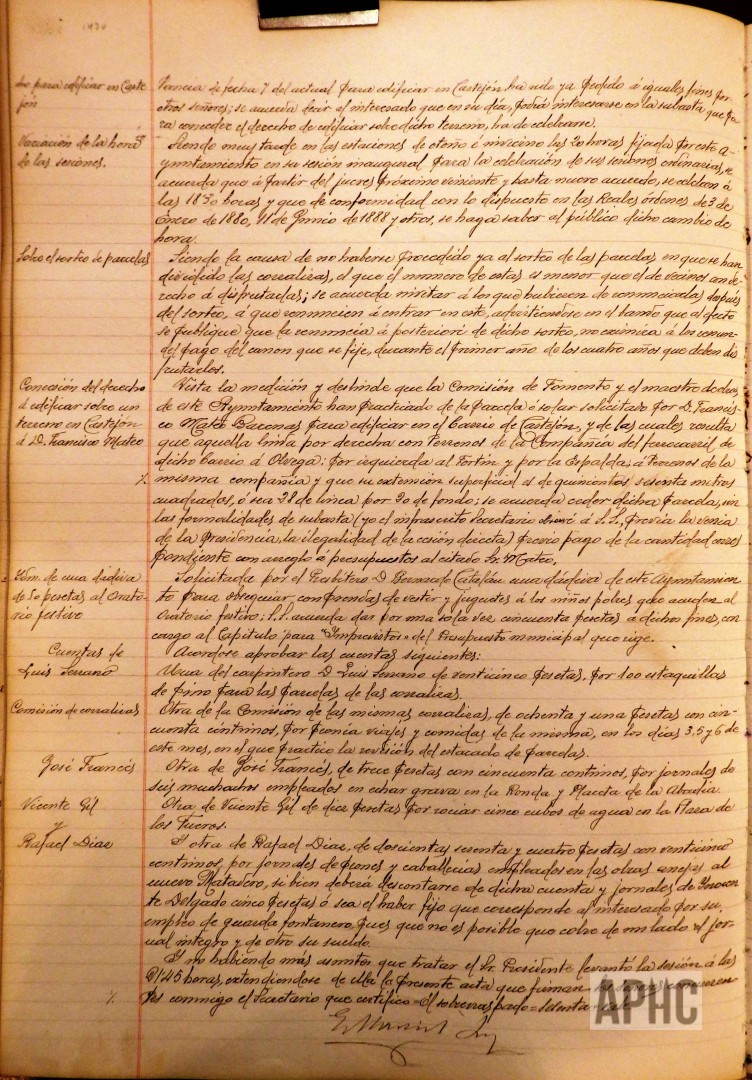 to para edificar en Caste
jón
tancia de fecha 7 del actual para edificar en Castejón ha sido ya pedido á iguales fines por
otros señores; se acuerda decir al interesado que en su día, podrá interesarse en la subasta que pa
ra conceder el derecho de edificar sobre dicho terreno, ha de celebrarse.
Variación de la hora
de las sesiones.
Siendo muy tarde en las estaciones de otoño é invierno las 20 horas fijada por este A-
yuntamiento en su sesión inaugural para la celebración de sus sesiones ordinarias, se
acuerda que á partir del jueves próximo viniente y hasta nuevo acuerdo, se celebren á
las 18'30 horas y que de conformidad con lo dispuesto en las Reales órdenes de 3 de
Enero de 1880, 11 de Junio de 1888 y otros, se haga saber al público dicho cambio de
hora.
Sobre el sorteo de parcelas
Siendo la causa de no haberse procedido ya al sorteo de las parcelas en que se han
dividido las corralizas, el que el número de estas es menor que el de vecinos con de-
recho á disfrutarlas; se acuerda invitar á los que hubieren de renunciarlas después
del sorteo, á que renuncien á entrar en este, advirtiendose en el bando que al efecto
se publique que la renuncia á posteriori de dicho sorteo, no eximirá á los
del pago del canon que se fije, durante el primer año de los cuatro años que deben dis
frutarlos.
Concesión del derecho
á edificar sobre un
terreno en Castejón
á D. Francisco Mateo
Vista la medición y deslinde que la Comisión de Fomento y el maestro de obras
de este Ayuntamiento han practicado de la parcela ó solar solicitado por D. Francis-
co Mateo para edificar en el Barrio de Castejón, y de las cuales resulta
que aquella linda por derecha con terrenos de la Compañía del ferrocarril de
dicho barrio á Olvega; por izquierda al Fortín y por la Espalda; á terrenos de la
misma compañía y que su extensión superficial es de quinientos sesenta metros
cuadrados, ó sea 28 de linea por 20 de fondo; se acuerda ceder dicha parcela, sin
las formalidades de subasta (yo el infrascrito Secretario á S.S., previa la venia
de la Presidencia, la ilegalidad de la cesión directa) previo pago de la cantidad corres
pondiente con arreglo á presupuestos al citado Sr. Mateo.
Idm. de una dádiva
de 50 pesetas al Orato-
rio festivo
Solicitada por el Presbitero D. Bernardo Catalán una dádiva de este Ayuntamien
to para obsequiar con prendas de vestir y juguetes á los niños pobres que acuden al
Oratorio festivo; S.S. acuerda dar por una sola vez, cincuenta pesetas a dichos fines, con
cargo al Capítulo para "Imprevistos" del Presupuesto municipal que rige.
Cuentas de
Luis Serrano
Acordose aprobar las cuentas siguientes:
Una del carpintero D. Luis Serrano de veinticinco pesetas, por 100 estaquillas
de pino para las parcelas de las corralizas.
Comisión de corralizas
Otra de la Comisión de las mismas corralizas, de ochenta y una pesetas con cin-
cuenta centimos, por viajes y comidas de la misma, en los dias 3, 5 y 6 de
este mes, en el que practico la revisión del estacado de parcelas.
José Francés
Otra de José Francés, de trece pesetas con cincuenta centimos, por jornales de
seis muchachos empleados en echar grava en la Ronda y Placeta de la Abadía.
Vicente Gil
y
Otra de Vicente Gil de diez pesetas por rociar cinco cubos de agua en la Plaza de
los Fueros.
Rafael Diaz
Y otra de Rafael Diaz, de doscientas sesenta y cuatro pesetas con veinticinco
centimos, por jornales de peones y caballerías empleados en las obras anejas al
nuevo Matadero, si bien deberá descontarse de dicha cuenta y jornales de Inocen
te Delgado cinco pesetas ó sea el haber fijo que corresponde al interesado por su
empleo de guarda fontanero, pues que no es posible que cobre de un lado el jor-
nal integro y de otro su sueldo.
Y no habiendo más asuntos que tratar el Sr. Presidente levantó la sesión á las
21'45 horas, extendiendose de ella la presente acta que firman los señores concurren
tes conmigo el Secretario que certifico = El sobrerraspado = sesenta
APHC